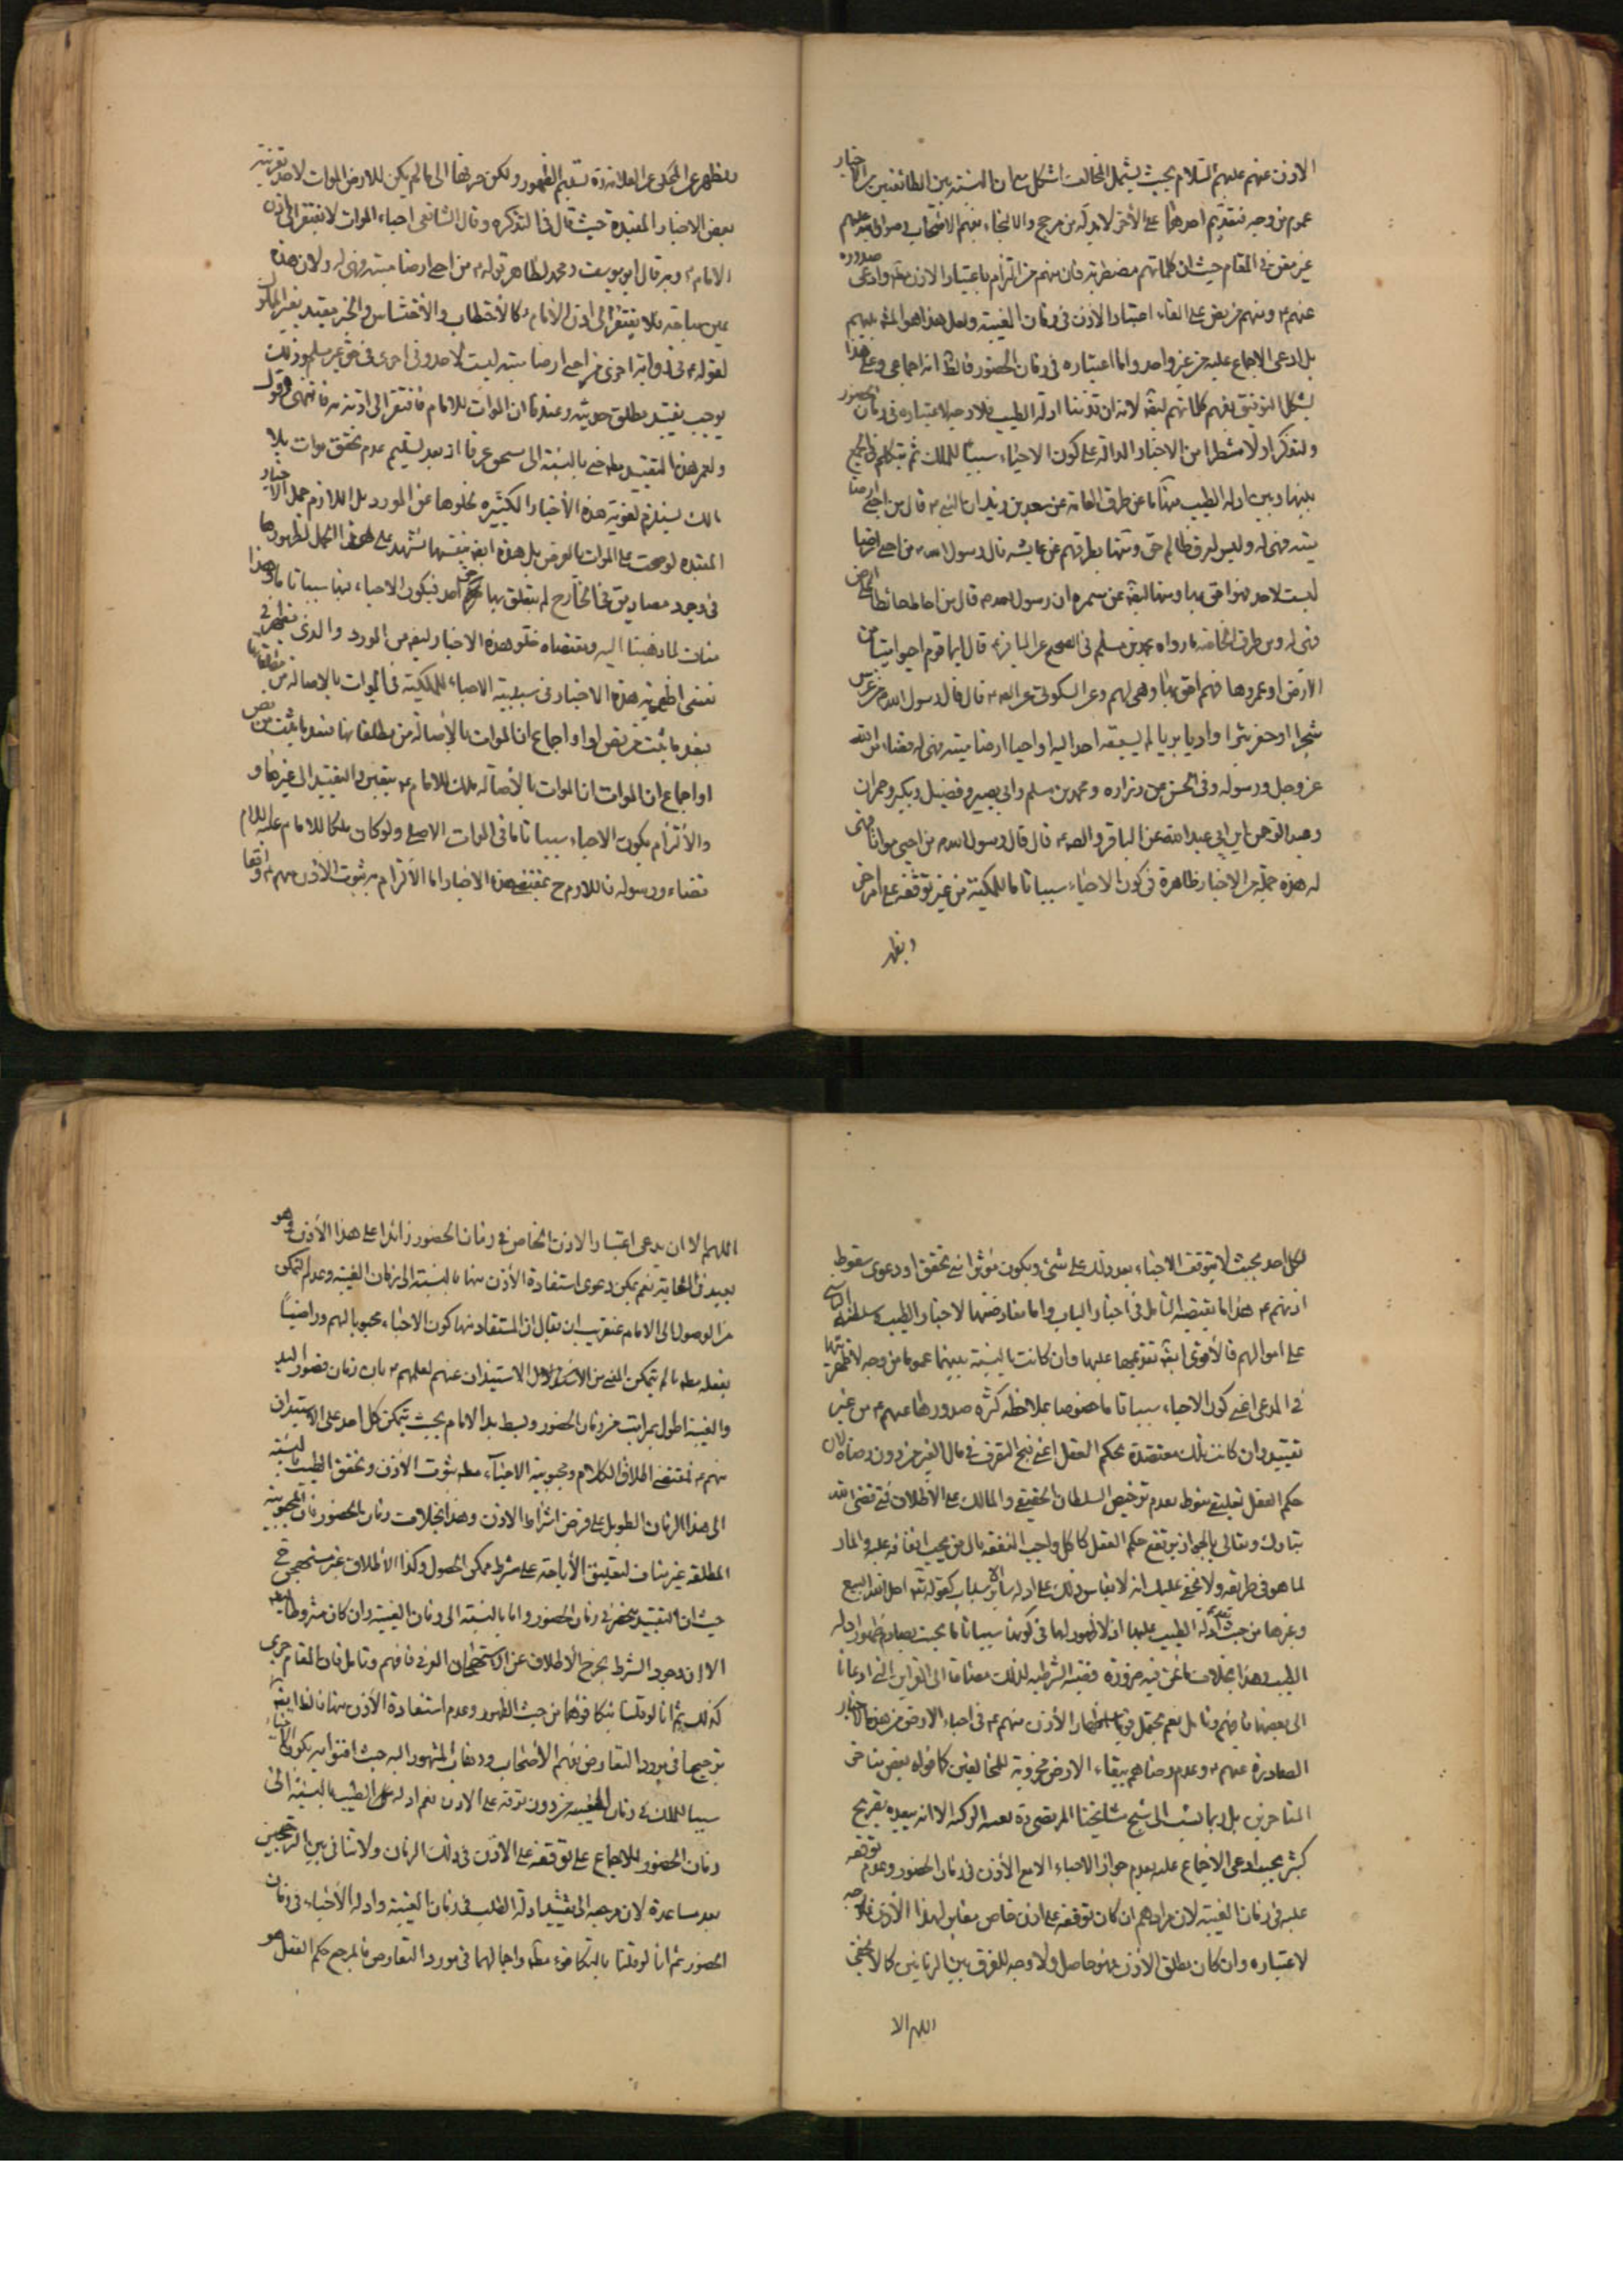 الاذن عنهم عليهم السلام بحيث يشمل المخالف اشكل مع ان النسبة بين الطائفتين من الاخبار
عموم من وجه فتقديم احدهما على الأخر لا بد له من مرجح والالتجاء بفهم الاصحاب رضوان الله عليهم
غير مغن في المقام حيث ان كلماتهم مضطربة فان منهم من التزم باعتبار الاذن مطلقا وادعى صدوره
عنهم ع ومنهم من نص على الغاء اعتبار الاذن في زمان الغيبة ولعل هذا هو المشهور بينهم
بل ادعى الاجماع عليه من غير واحد واما اعتباره في زمان الحضور فالظ انه اجماعي وعلى هذا
يشكل التوفيق بفهم كلماتهم ايضا لانه ان قدمنا ادلة الطيب فلا وجه لاعتباره في زمان الحضور
ولنذكر اولا شطرا من الاخبار الدالة على كون الاحياء سببا للملك ثم نتكلم في الجمع
بينها وبين ادلة الطيب منها ما عن طرق العامة عن سعيد بن زيد ان النبي ص قال من احيى ارضا
ميتة فهي له وليس لعرق ظالم حق ومنها بطرقهم عن عايشه قال رسول الله ص من احيى ارضا
ليست لاحد فهو احق بها ومنها ايضا عن سمره ان رسول الله ص قال من احاط حائطا على ارض
فهي له ومن طرق الخاصة ما رواه محمد بن مسلم في الصحيح عن الباقر ع قال ايما قوم احيوا شيئا من
الارض او عمروها فهم احق بها وهي لهم وعن السكوني عن الص ع قال قال رسول الله ص من غرس
شجرا او حفر بئرا واديا بريا لم يسبقه احد اليه او احيا ارضا ميتة فهي له قضاء من الله
عز وجل ورسوله وفي الحسن عن زراره ومحمد بن مسلم وابي بصير وفضيل وبكير وحمران
وعبد الرحمن ابن ابي عبد الله عن الباقر والص ع قال قال رسول الله ص من احيى مواتا فهي
له هذه جملة من الاخبار ظاهرة في كون الاحياء سببا تاما للملكية من غير توقفه على امر اخر
ويظهر
ويظهر عن المحكي عن العلامة ره تسليم الظهور ولكن صرفها الى ما لم يكن للارض الموات لاحد بقرينة
بعض الاخبار المقيدة حيث قال في التذكره وقال الشافعي احياء الموات لا يفتقر الى اذن
الامام ع وبه قال ابو يوسف ومحمد لظاهر قوله ع من احيى ارضا ميتة فهي له ولان هذه
عين مباحة فلا يفتقر الى اذن الأمام كالأحتطاب والأحتشاش والخبر مقيد بغير المملوك
لقوله ع في رواية اخرى من احيى ارضا ميتة ليست لاحد وفي اخرى في حق غير مسلم وذلك
يوجب تقييد مطلق حديثه وعندنا ان الموات للامام فافتقر الى اذنه فيه فانتهى وقول
ولعمر هذا التقييد بالنسبة الى مسموع عرفا اذ بعد تسليم عدم تحقق موات بلا
مالك يستلزم لغوية هذه الأخبار الكثيره خلوها عن المورد بل اللازم حمل الاخبار
المقيده لو صحت على الموات بالعرض بل هذه ايضا بنفسها تشهد على هذا الحمل لظهورها
في وجود مصاديق في الخارج لم يتعلق بها حق احد فيكون الاحياء فيها سببا تاما وهذا
مناف لما ذهبنا اليه ومقتضاه خلو هذه الاخبار ايضا من المورد والذي يظهر في
نفسي اظهرية هذه الاخبار في سببية الاحياء للملكية في الموات بالاصالة من مطلقاتها
فبعد ما ثبت من نص او اجماع ان الموات بالأصالة من مطلقاتها فبعد ما ثبت من نص
او اجماع ان الموات ان الموات بالأصالة ملك للامام ع يتعين والتقييد الى غيرها و
والألتزام بكون الاحياء سببا تاما في الموات الاصلي ولو كان ملكا للامام عليه السلام
قضاء ورسوله فاللازم ح بمقتضى هذه الاخبار اما الألتزام بثبوت الأذن منهم ع واقعا
لكل احد بحيث لا يتوقف الاحياء بعد ذلك على شئ ويكون مؤثرا في تحقق او دعوى سقوط
اذنهم ع هذا ما يقتضيه التامل في اخبار الباب واما معارضتها لاخبار الطيب وسلطنة الناس
على اموالهم فالأقوى ايضا تقديمها عليها وان كانت بالنسبة بينهما عموما من وجه لاظهريتها
في المدعى اعني كون الاحياء سببا تاما خصوصا بملاحظة كثره صدورها عنهم ع من غير
تقييد وان كانت تلك معتضدة بحكم العقل اعني قبح التصرف في مال الغير من دون رضاه لان
حكم العقل تعليقي منوط بعدم ترخيص السلطان الحقيقي والمالك على الأطلاق فمتى قضى الله
تبارك وتعالى بالجواز يرتفع حكم العقل كاكل واجب النفقة مال من يجب انفاقه عليه والمار
لما هو في طريقه ولا يخفى عليك انه لا يقاس ذلك على ادلة ساير الاسباب كقوله تع احل الله البيع
وغيرها من حيث تقدم ادلة الطيب عليها اذ لا ظهور لها في كونها سببا تاما بحيث يصادم ظهور ادلة
الطيب وهذا بخلاف ما نحن فيه ضرورة
الى بعضها فافهم وتامل نعم يحتمل الأذن منهم ع في احياء الارض من هذه الاخبار
الصادرة عنهم ع وعدم رضاهم ببقاء الارض مخروبة للمخالفين كما قواه بعض مشايخي
المتاخرين بل ربما نسب الى شيخ مشايخنا المرتضى قده نفسه الزكيه الا انه يبعده تصريح
كثير بحيث ادعى الاجماع عليه بعدم جواز الاحياء الا مع الأذن في زمان الحضور وعدم توقفه
عليه في زمان الغيبة لان مرادهم ان كان توقفه على اذن خاص مقابل لهذا الأذن فلا وجه
لاعتباره وان كان مطلق الأذن فهو حاصل ولا وجه للفرق بين الزمانين كما لا يخفى
اللهم الا
اللهم الا ان يدعى اعتبار الاذن الخاص في زمان الحضور زائدا على هذا الأذن وهو
بعيد في الغاية نعم يمكن دعوى استفادة الأذن منها بالنسبة الى زمان الغيبة وعدم التمكن
من الوصول الى الامام بتقريب ان يقال ان المستفاد منها كون الاحياء محبوبا لهم وراضيا
بفعله مطلقا ما لم يتمكن المحيي من الاستيذان عنهم لعلمهم ع بان زمان قصور اليد
والغيبة اطول بمراتب من زمان الحضور وبسط يد الامام بحيث يتمكن كل احد على الاستيذان
منهم ع فمقتضى اطلاق الكلام ومحبوبية الاحياء مطلقا ثبوت الأذن وتحقق الطيب بالنسبة
الى هذا الزمان الطويل على فرض اشتراط الاذن وهذا بخلاف زمان الحضور فان المحبوبية
المطلقة غير مناف لتعليق الأباحة على شرط ممكن الحصول وكذا الاطلاق غير مستهجن ح
حيث ان التقييد منحصر في زمان الحضور واما بالنسبة الى زمان الغيبة وان كان مشروطا ايضا
الا ان وجود الشرط يخرج الأطلاق عن الاستهجان العرفي فافهم وتامل فان المقام حري
كذلك ثم انا لو قلنا بتكافؤهما من حيث الظهور وعدم استفادة الأذن منها فالظ ايضا
ترجيحها في مورد التعارض بفهم الأصحاب وذهاب المشهور اليه حيث افتوا به بكون الاحياء
سببا للملك في زمان الغيبة من دون توقفه على الاذن نعم ادلة الطيب بالنسبة الى
زمان الحضور للاجماع على توقفه على الأذن في ذلك الزمان ولا تنافي بين الترجيحين
بعد مساعدة لان مرجعه الى تقييد ادلة الطيب في زمان الغيبة وادلة الأحياء في زمان
الحضور ثم انا لو قلنا بالتكافؤ مطلقا واجمالهما في مورد التعارض فالمرجع حكم العقل هو